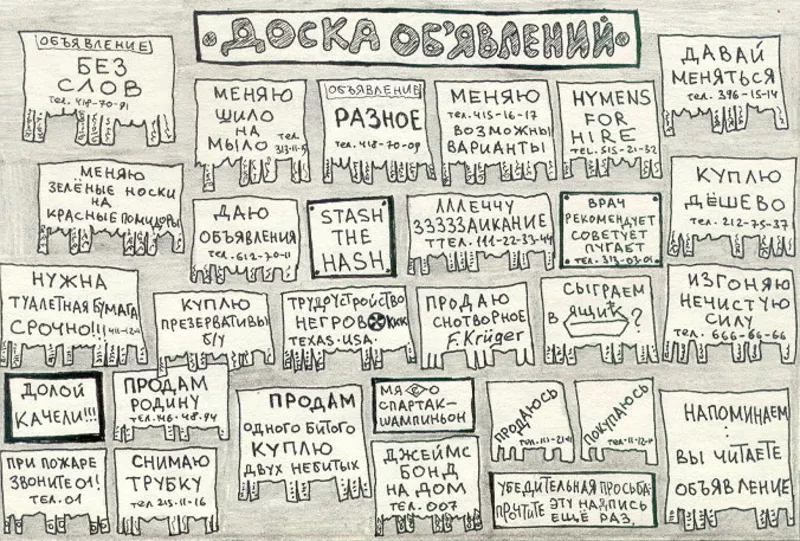 ДОСКА ОБ'ЯВЛЕНИЙ
ОБЪЯВЛЕНИЕ
БЕЗ
СЛОВ
тел. 418-70-91
МЕНЯЮ
ШИЛО
НА тел.
МЫЛО 313-11-5
ОБЪЯВЛЕНИЕ
РАЗНОЕ
тел. 418-70-09
МЕНЯЮ
тел. 415-16-17
ВОЗМОЖНЫ
ВАРИАНТЫ
HYMENS
FOR
HIRE
TEL. 515-21-32
ДАВАЙ
МЕНЯТЬСЯ
тел. 396-15-14
МЕНЯЮ
ЗЕЛЁНЫЕ НОСКИ
НА
КРАСНЫЕ ПОМИДОРЫ
ДАЮ
ОБЪЯВЛЕНИЯ
тел. 612-70-11
STASH
THE
HASH
ЛЛЛЕЧЧУ
ЗЗЗЗЗАИКАНИЕ
ТТЕЛ. 111-22-33-44
ВРАЧ
РЕКОМЕНДУЕТ
СОВЕТУЕТ
ПУГАЕТ
тел. 313-03-01
КУПЛЮ
ДЁШЕВО
тел. 212-75-37
НУЖНА
ТУАЛЕТНАЯ БУМАГА
СРОЧНО!!!
КУПЛЮ
ПРЕЗЕРВАТИВЫ
Б/У
ТРУДУСТРОЙСТВО
НЕГРОВ KKK
TEXAS. USA.
ПРОДАЮ
СНОТВОРНОЕ
F. Krüger
СЫГРАЕМ
В ЯЩИК?
ИЗГОНЯЮ
НЕЧИСТУЮ
СИЛУ
тел. 666-66-66
ДОЛОЙ
КАЧЕЛИ!!!
ПРОДАМ
РОДИНУ
тел. 146-48-94
ПРОДАМ
ОДНОГО БИТОГО
КУПЛЮ
ДВУХ НЕБИТЫХ
МЯСО
СПАРТАК–
ШАМПИНЬОН
ПРОДАЮСЬ
ПОКУПАЮСЬ
НАПОМИНАЕМ:
ВЫ ЧИТАЕТЕ
ОБЪЯВЛЕНИЕ
ПРИ ПОЖАРЕ
ЗВОНИТЕ 01!
ТЕЛ. 01
СНИМАЮ
ТРУБКУ
тел 215-11-16
ДЖЕЙМС
БОНД
НА ДОМ
тел. 007
УБЕДИТЕЛЬНАЯ ПРОСЬБА:
ПРОЧТИТЕ ЭТУ НАДПИСЬ
ЕЩЁ РАЗ.